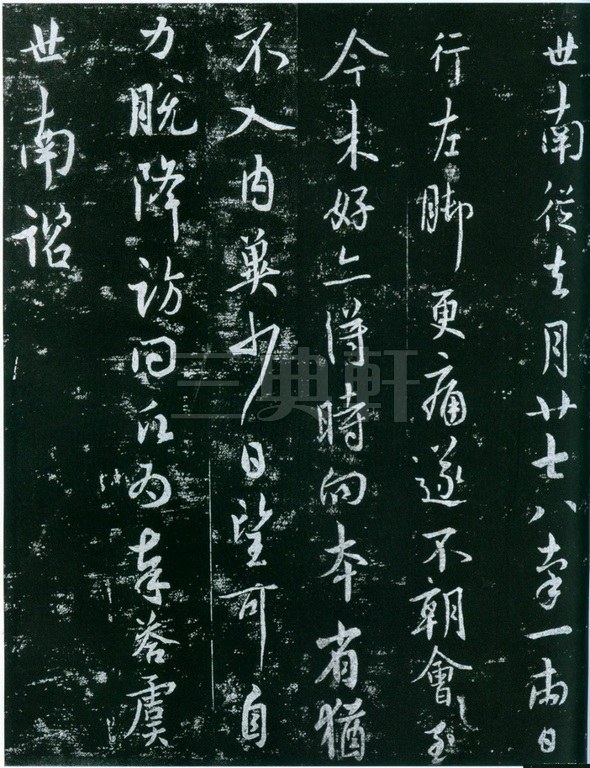 世南從去月廿七八率一兩日
行左脚更痛遂不朝會至
今未好亦得時向本省猶
不入内冀少日望可自
力脱降訪問願為奉答虞
世南諮
三典軒